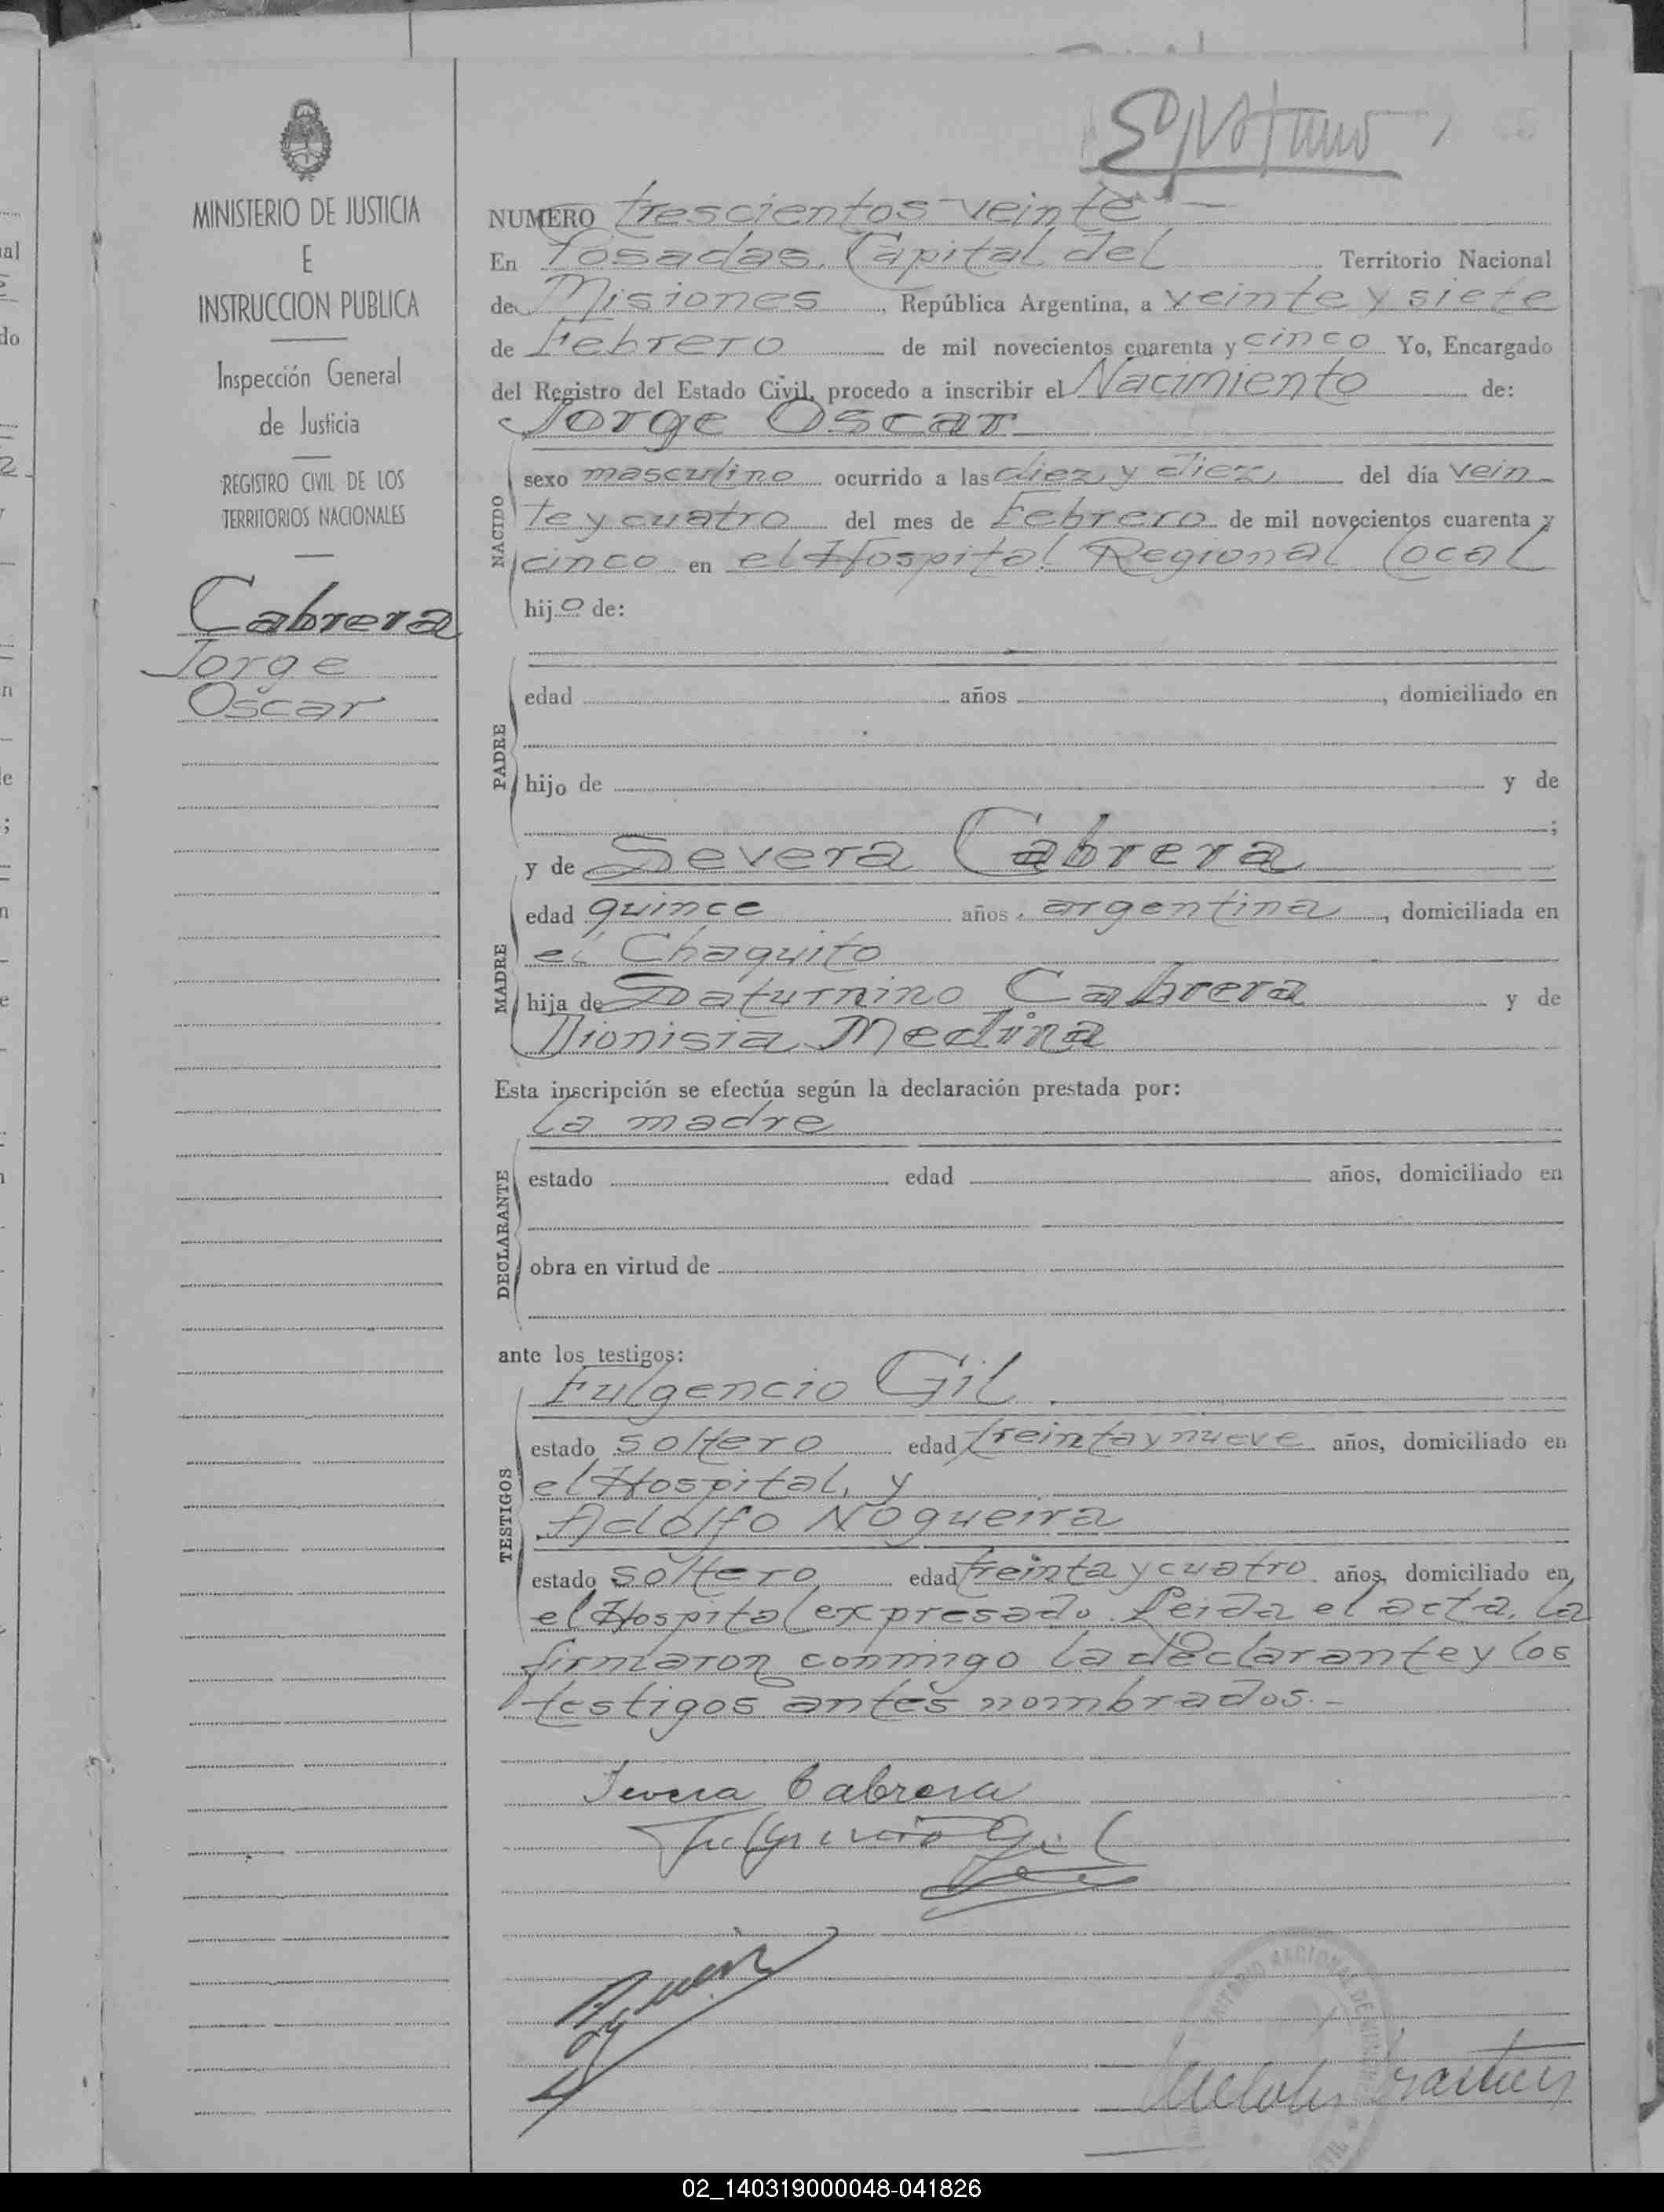 MINISTERIO DE JUSTICIA
E
INSTRUCCION PUBLICA
Inspección General
de Justicia
REGISTRO CIVIL DE LOS
TERRITORIOS NACIONALES
Cabrera
Jorge
Oscar
NUMERO trescientos veinte -
En Posadas, Capital del Territorio Nacional
de Misiones, República Argentina, a veinte y siete
de Febrero de mil novecientos cuarenta y cinco Yo, Encargado
del Registro del Estado Civil, procedo a inscribir el Nacimiento de:
Jorge Oscar
NACIDO
sexo masculino ocurrido a las diez y diez, del día vein-
te y cuatro del mes de Febrero de mil novecientos cuarenta y
cinco en el Hospital Regional local
hijo de:
PADRE
edad años , domiciliado en
hijo de y de
;
y de Severa Cabrera
MADRE
edad quince años, argentina, domiciliada en
el Chaquito
hija de Saturnino Cabrera y de
Dionisia Medina
Esta inscripción se efectúa según la declaración prestada por:
la madre
DECLARANTE
estado edad años, domiciliado en
obra en virtud de
ante los testigos:
Fulgencio Gil
TESTIGOS
estado soltero edad treinta y nueve años, domiciliado en
el Hospital, y
Adolfo Nogueira
estado soltero edad treinta y cuatro años, domiciliado en
el Hospital expresado. Leida el acta, la
firmaron conmigo la declarante y los
testigos antes nombrados.-
Severa Cabrera
Fulgencio Gil
02_140319000048-041826